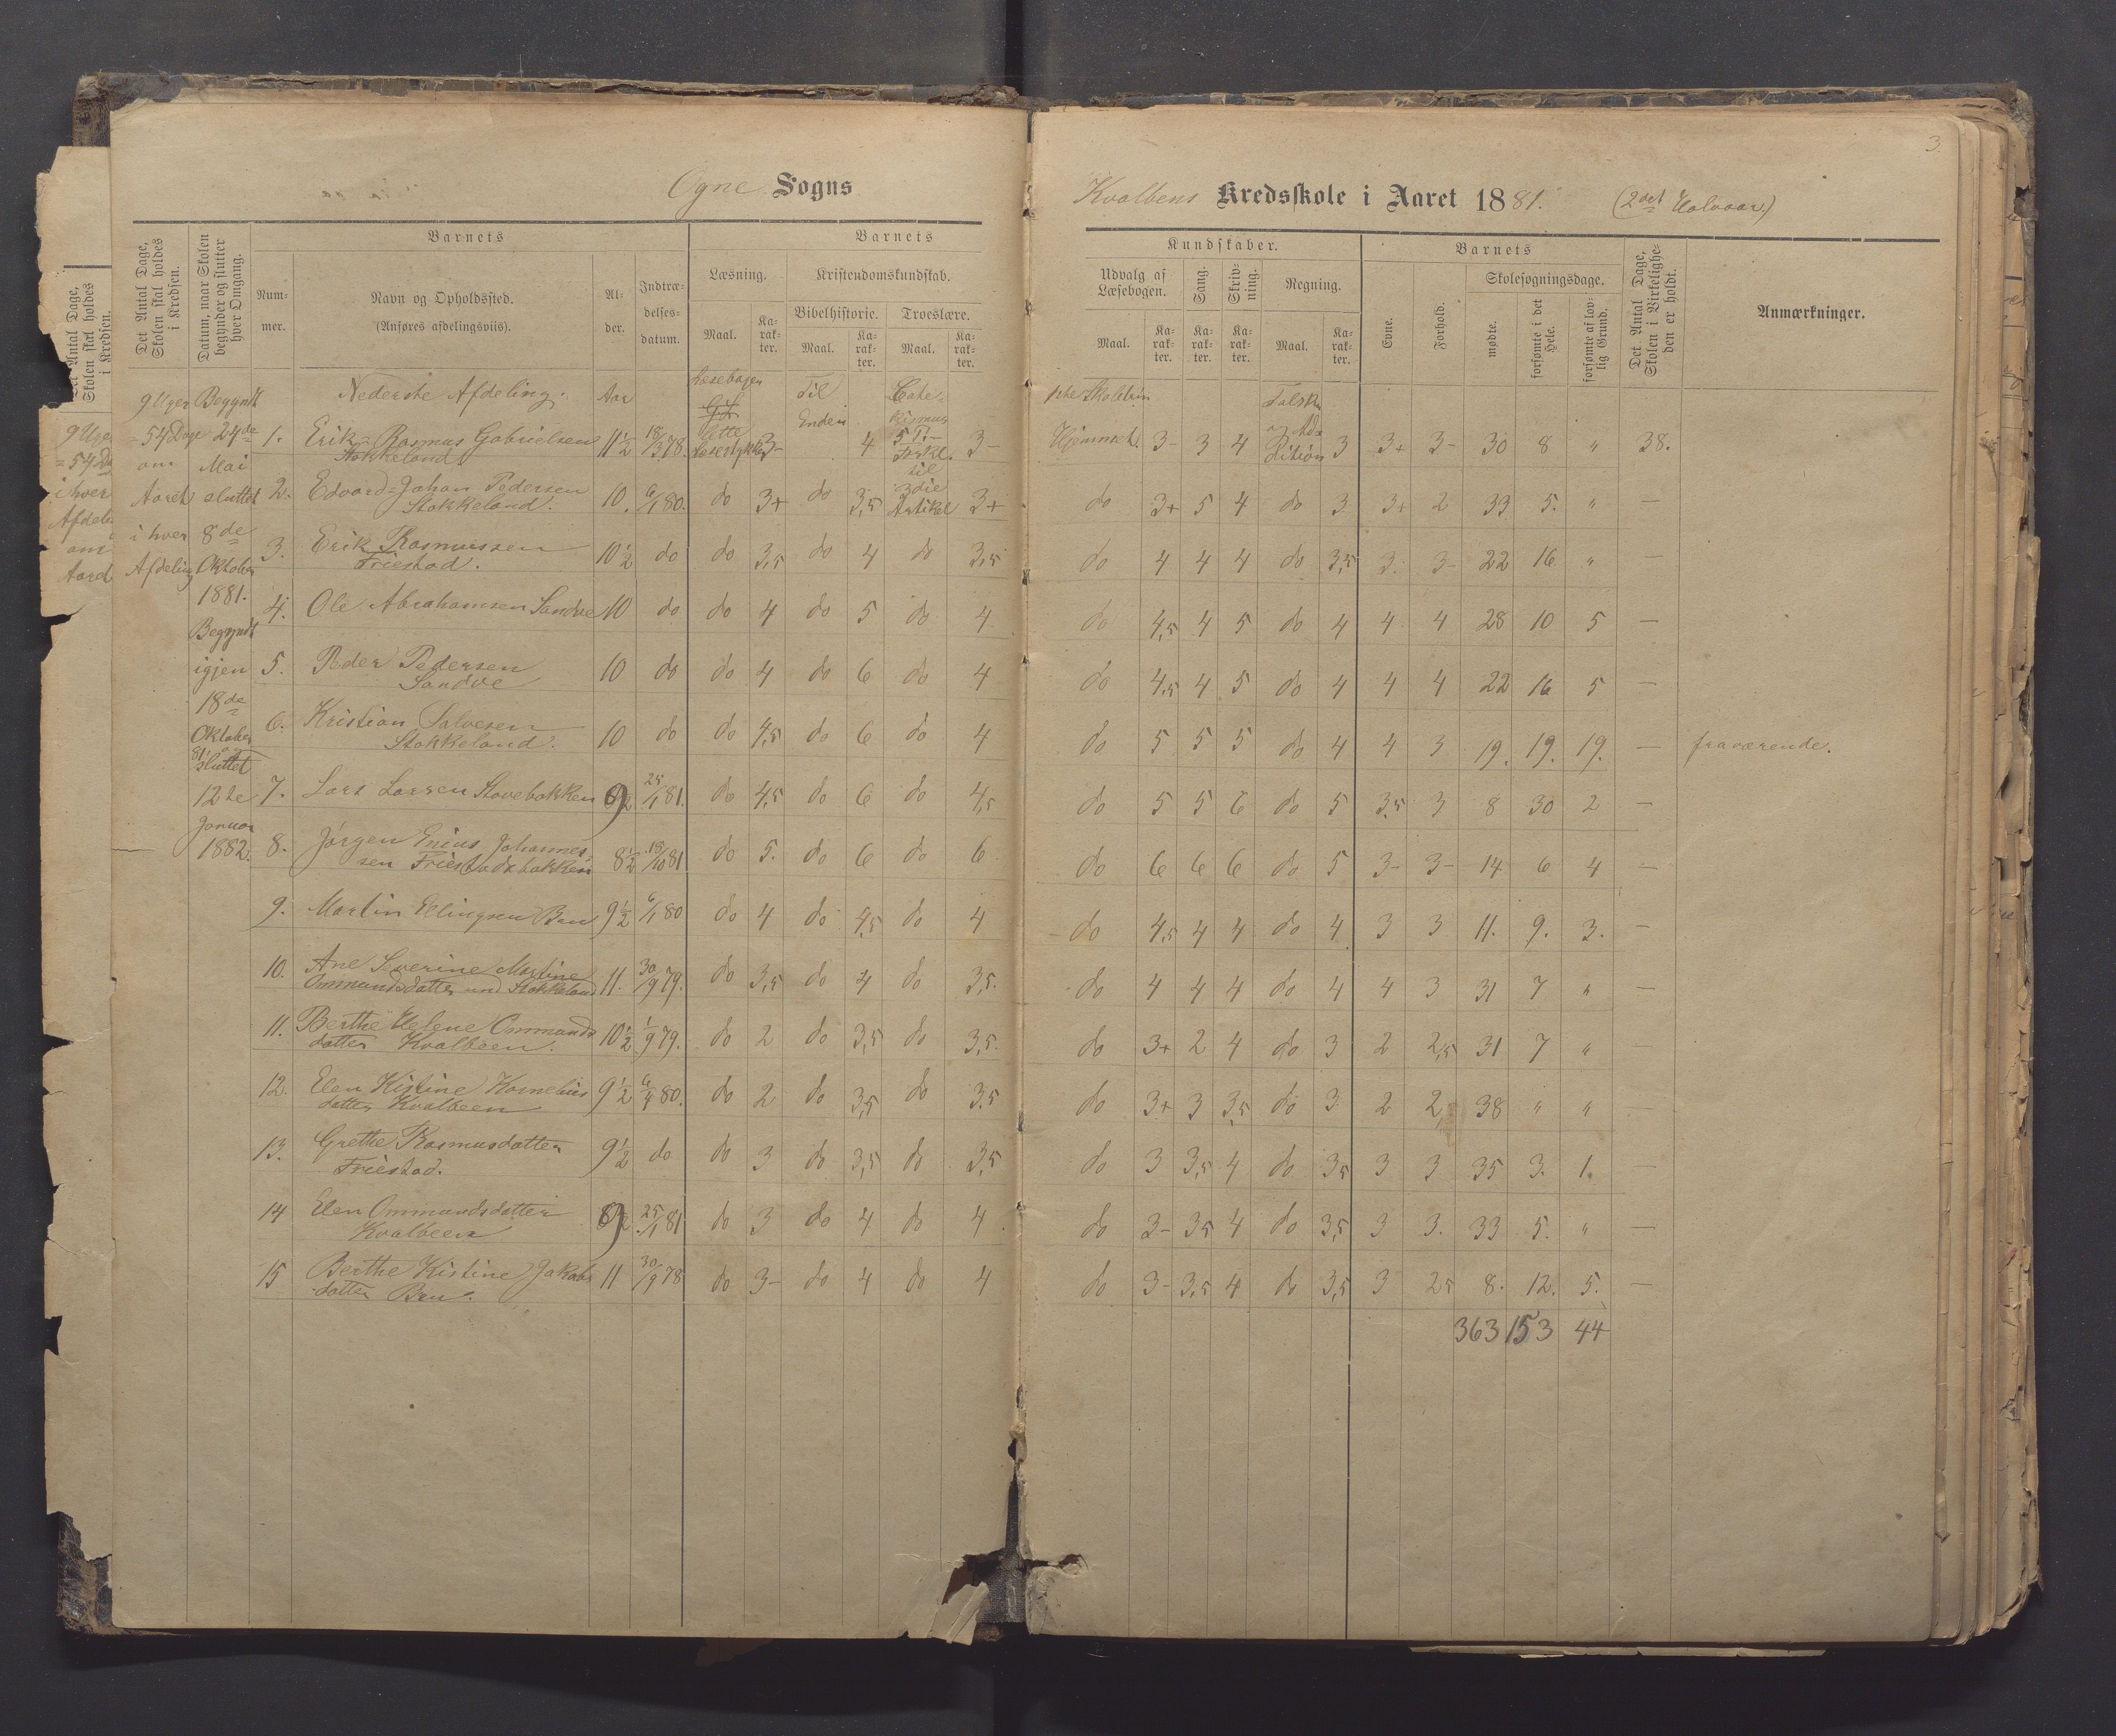 3.
Ogne Sogns
Kvalbens Kredsskole i Aaret 1881. (2det Halvaar.)
Det Antal Dage, Skolen skal holdes i Kredsen.
Det Antal Dage, Skolen skal holdes i Kredsen.
Datum, naar Skolen begynder og slutter hver Omgang.
Barnets
Nummer.
Navn og Opholdssted.
(Anføres afdelingsviis).
Alder.
Indtrædelsesdatum.
Barnets
Læsning.
Maal.
Karakter.
Kristendomskundskab.
Bibelhistorie.
Maal.
Karakter.
Troeslære.
Maal.
Karakter.
Kundskaber.
Udvalg af Læsebogen.
Maal.
Karakter.
Sang.
Karakter.
Skrivning.
Karakter.
Regning.
Maal.
Karakter.
Barnets
Evne.
Forhold.
Skolesøgningsdage.
mødte.
forsømte i det Hele.
forsømte af lovlig Grund.
Det Antal Dage, Skolen i Virkeligheden er holdt.
Anmærkninger.
9 Uger
= 54 Dage
om
Aaret
i hver
Afdeling
Begyndt
24de
Mai
sluttet
8de
Oktober
1881.
Begyndt
igjen
18de
Oktober
81 og
sluttet
12te
Januar
1882.
Nederste Afdeling. Aar Læsebogen Til Enden Cate- 1ste Skoletrin Talsk.
1. Erik Rasmus Gabrielsen
Stokkeland 11½ 18/3 78. lette Læsestykker 3- 4 3- Hjemmet. 3- 3 4 og Addition 3 3+ 3- 30 8 " 38.
2. Edvard Johan Pedersen
Stokkeland. 10. 6/1 80. do 3+ do 3,5 3die Artikel 3+ do 3+ 5 4 do 3 3+ 2 33 5. " —
3. Erik Rasmussen
Friestad. 10½ do do 3,5 do 4 do 3,5 do 4 4 4 do 3,5 3. 3- 22 16 " —
4. Ole Abrahamsen Sandve 10 do do 4 do 5 do 4 do 4,5 4 5 do 4 4 4 28 10 5 —
5. Peder Pedersen
Sandve 10 do do 4 do 6 do 4 do 4,5 4 5 do 4 4 4 22 16 5 —
6. Kristian Salvesen
Stokkeland. 10 do do 4,5 do 6 do 4 do 5 5 5 do 4 4 3 19. 19. 19. — fraværende.
7. Lars Larsen Stovebakken 9 25/1 81. do 4,5 do 6 do 4,5 do 5 5 6 do 5 3,5 3 8 30 2 —
8. Jørgen Enius Johannes-
sen Friestadbakken 8½ 18/10 81 do 5. do 6 do 6 do 6 6 6 do 5 3- 3- 14 6 4 —
9. Martin Ellingsen Bru 9½ 6/1 80 do 4 do 4,5 do 4 do 4,5 4 4 do 4 3 3 11. 9. 3. —
10. Ane Severine Martine
Ommundsdatter und Stokkeland 11. 30/9 79. do 3,5 do 4 do 3,5. do 4 4 4 do 4 4 3 31 7 " —
11. Berthe Helene Ommunds
datter Kvalbeen. 10½ 1/9 79. do 2 do 3,5 do 3,5. do 3+ 2 4 do 3 2 2,5 31 7 " —
12. Elen Kistine Kornelius
datter Kvalbeen 9½ 6/4 80. do 2 do 3,5 do 3,5 do 3+ 3 3,5 do 3 2 2, 38 " " —
13. Grethe Rasmusdatter
Friestad. 9½ do do 3 do 3,5 do 3,5 do 3 3,5 4 do 3,5 3 3 35 3. 1. —
14 Elen Ommundsdatter
Kvalbeen 9 25/1 81 do 3 do 4 do 4 do 3- 3,5 4 do 3,5 3 3. 33 5. " —
15 Berthe Kistine Jakobs
datter Bru. 11 30/9 78 do 3- do 4 do 4 do 3- 3,5 4 do 3,5 3 2,5 8. 12. 5. —
363 153 44